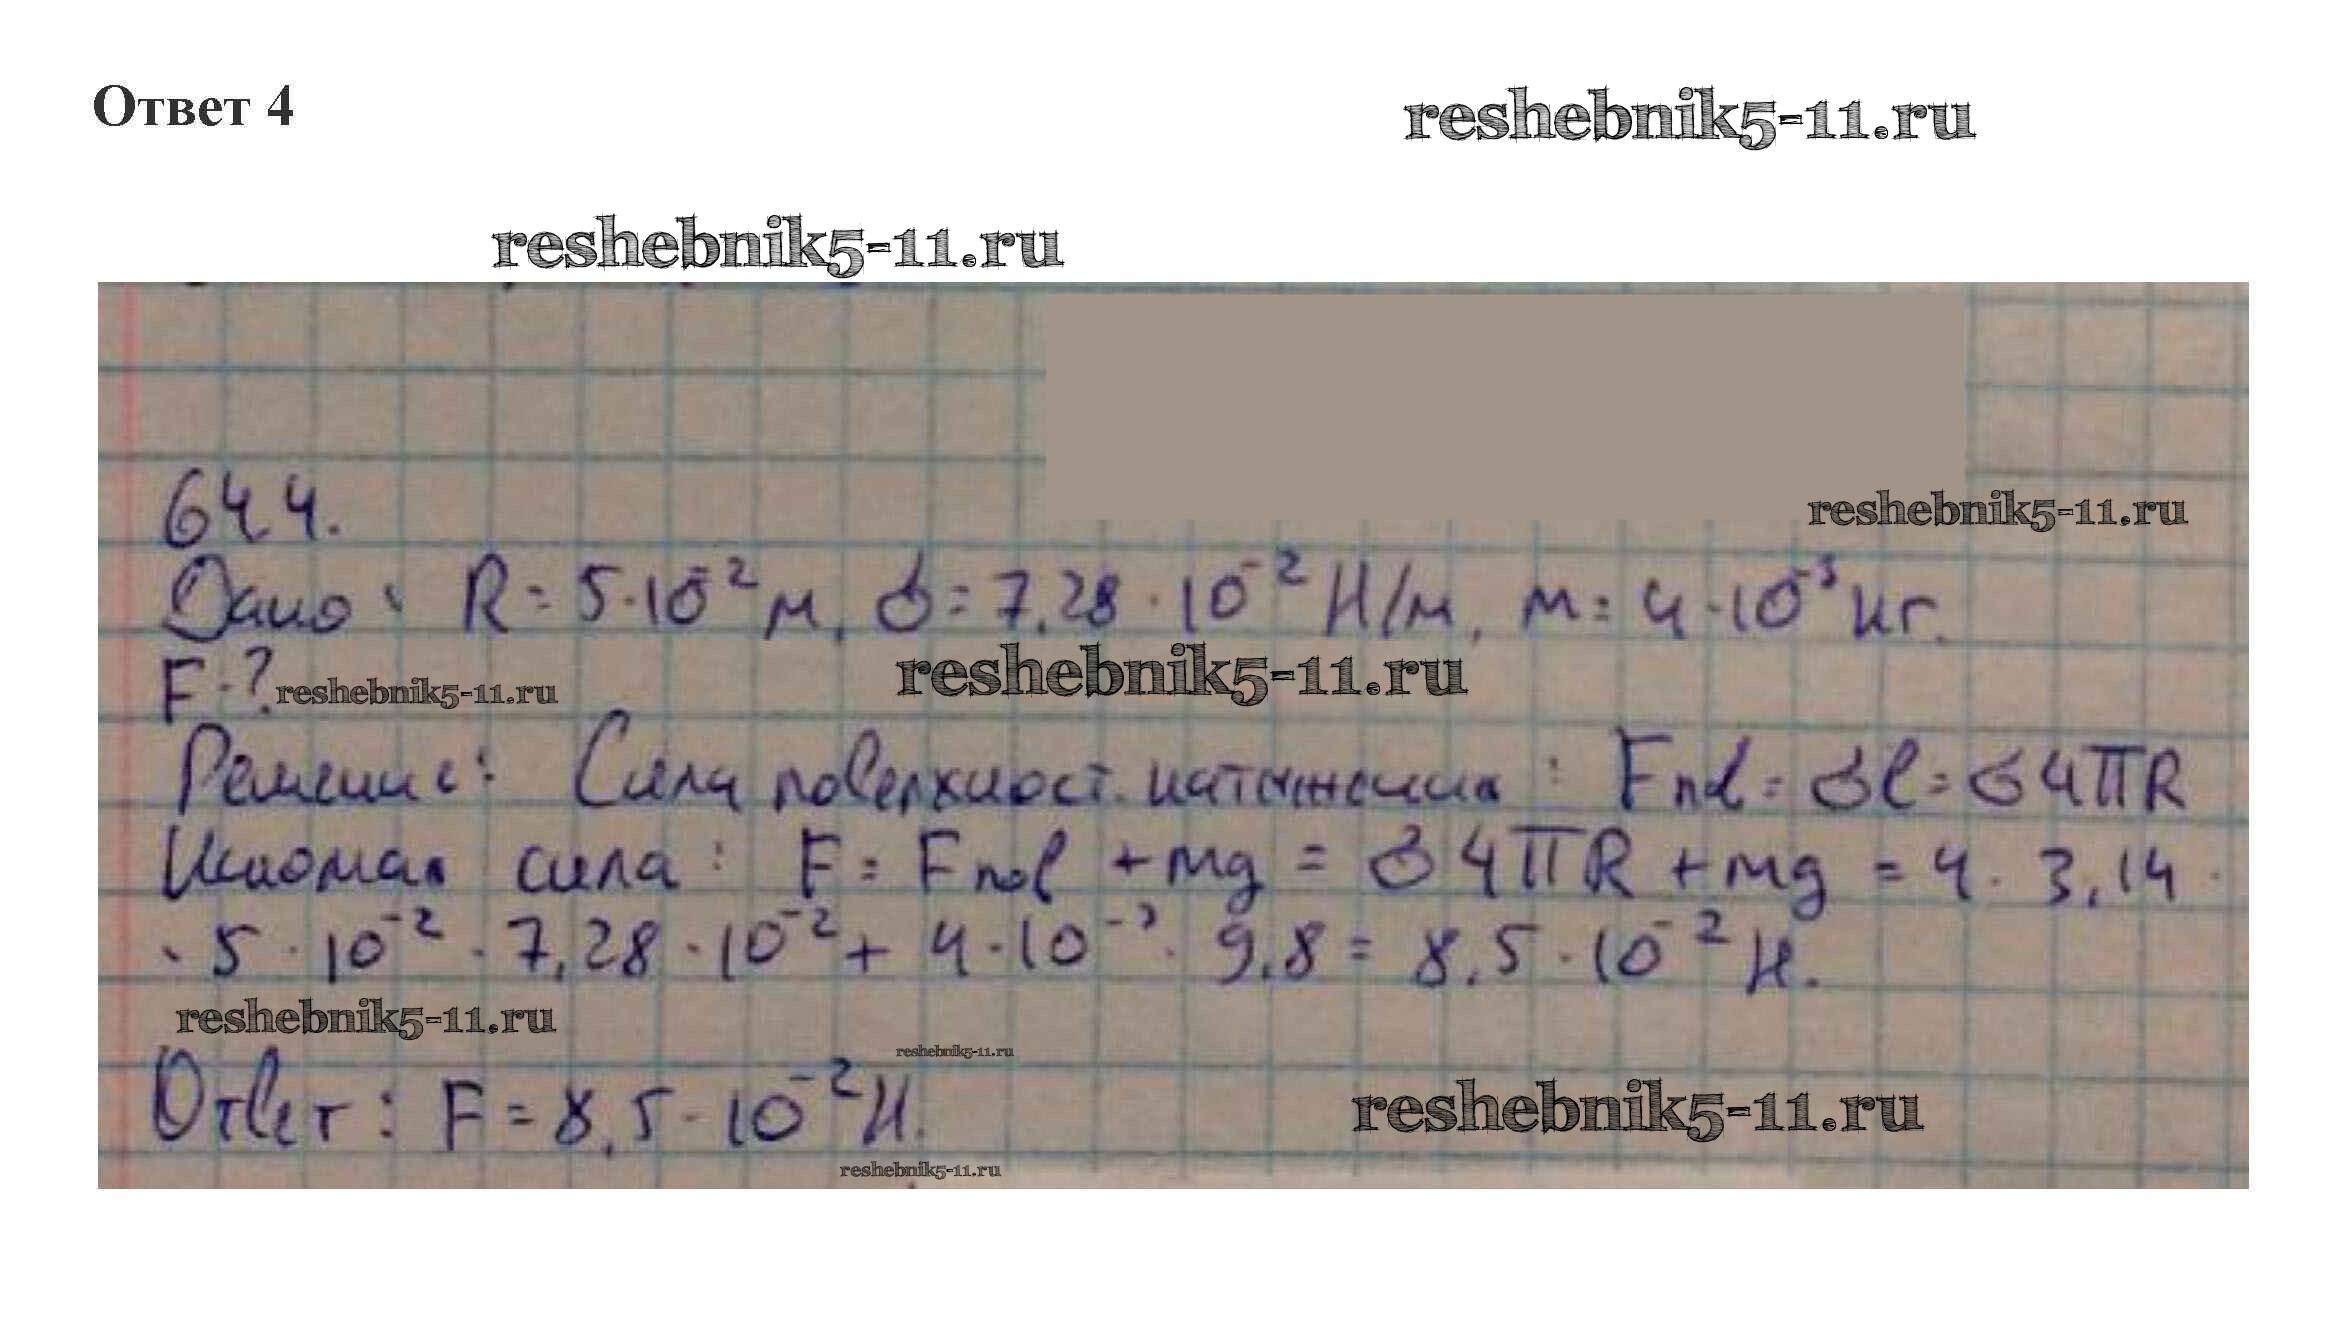 Ответ 4
reshebnik5-11.ru
reshebnik5-11.ru
64.4.
reshebnik5-11.ru
Дано: R = 5·10⁻² м, σ = 7,28·10⁻² Н/м, m = 4·10⁻³ кг.
F-? reshebnik5-11.ru
reshebnik5-11.ru
Решение: Сила поверхност. натяжения: Fпов = σl = σ4πR
Искомая сила: F = Fпов + mg = σ4πR + mg = 4·3,14·
·5·10⁻²·7,28·10⁻² + 4·10⁻³·9,8 = 8,5·10⁻² Н.
reshebnik5-11.ru
reshebnik5-11.ru
Ответ: F = 8,5·10⁻² Н.
reshebnik5-11.ru
reshebnik5-11.ru